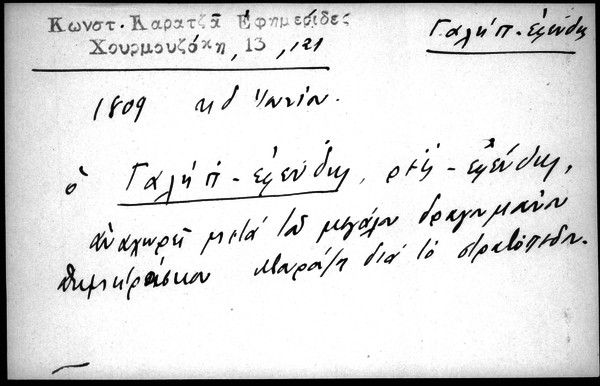 Κωνστ. Καρατζᾶ Ἐφημερίδες
Χουρμουζάκη, 13, 121
Γαλήπ-ἐφένδης
1809 κδ Ἰουνίου.
ὁ Γαλήπ-ἐφένδης, ρεΐς-ἐφένδης,
ἀναχωρεῖ μετά τοῦ μεγάλου δραγουμάνου
Δημητράσκου Μουρούζη διά τό στρατόπεδον.